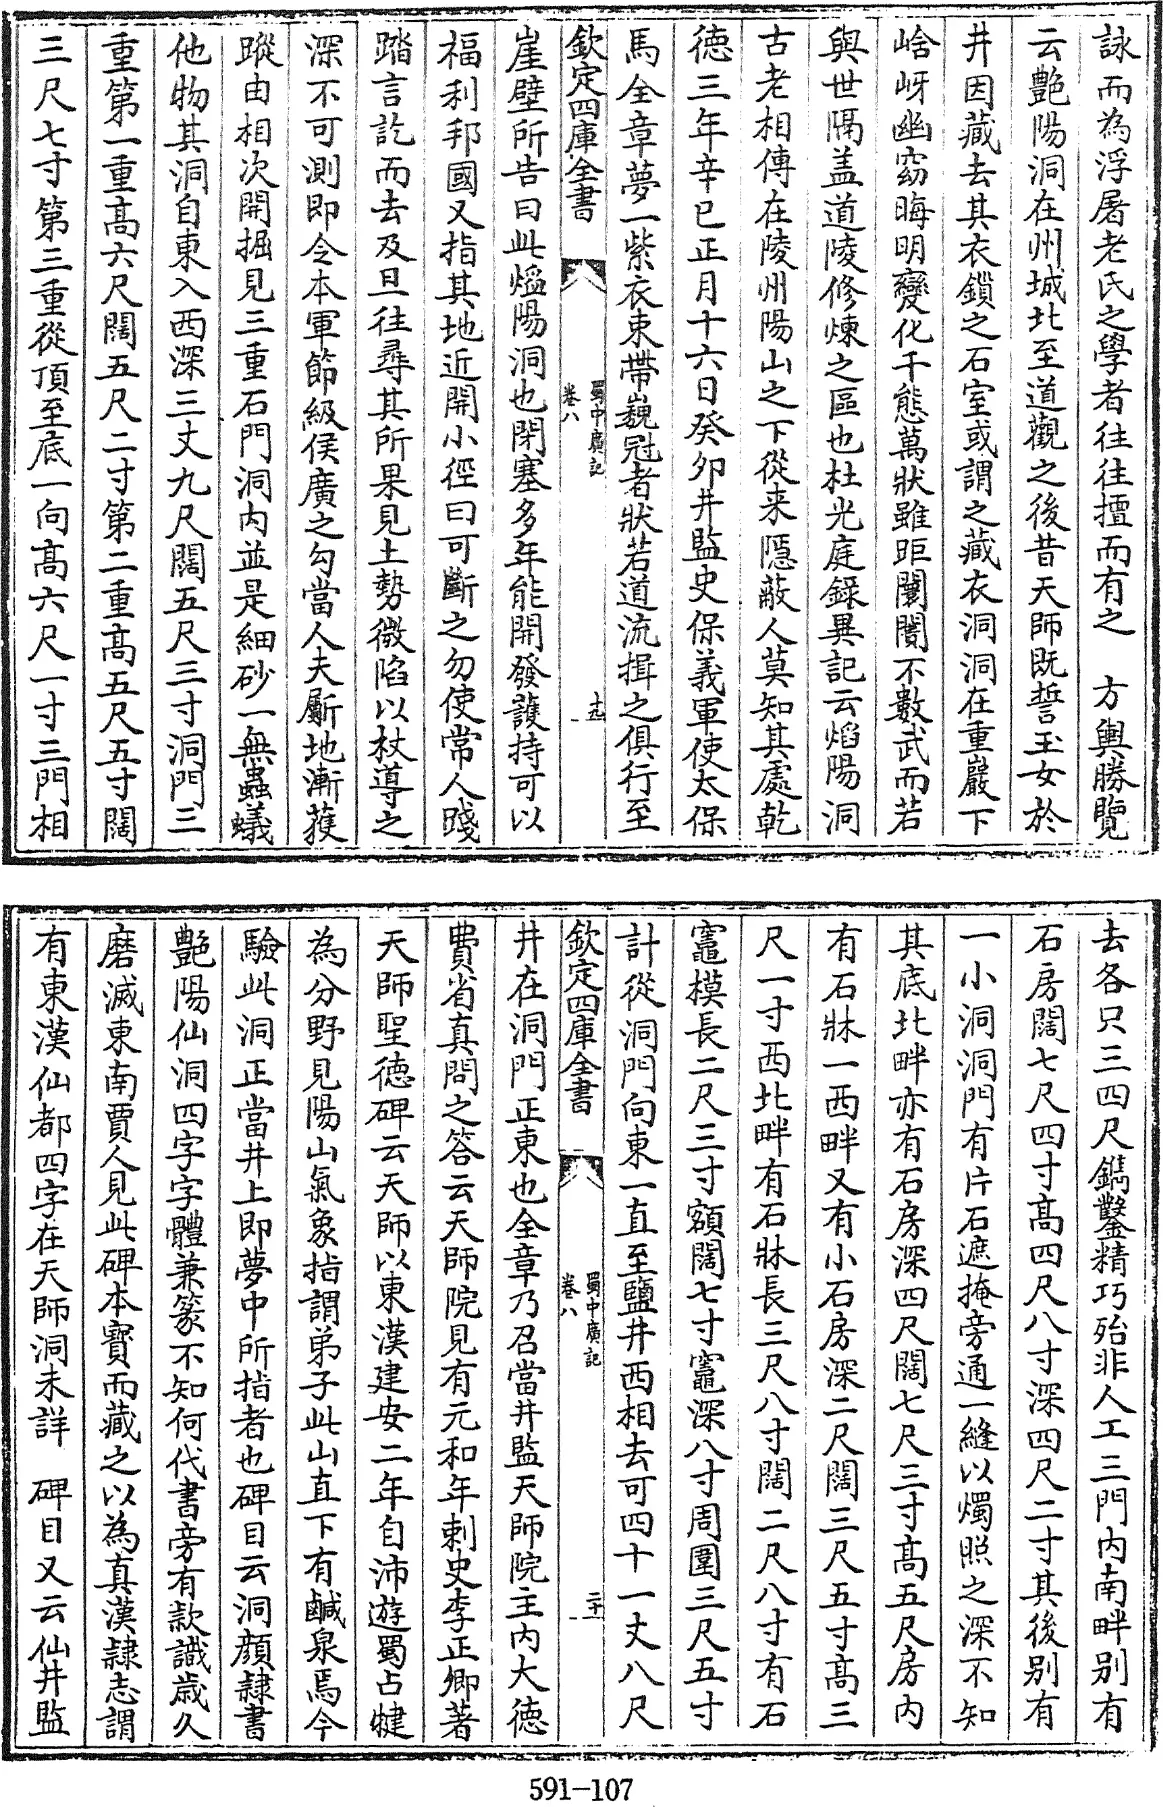 詠而為浮屠老氏之學者往往擅而有之　方輿勝覽
云艷陽洞在州城北至道觀之後昔天師既誓玉女於
井因藏去其衣鎖之石室或謂之藏衣洞洞在重巖下
峆岈幽窈晦明變化千態萬狀雖距闤闠不數武而若
與世隔盖道陵修煉之區也杜光庭錄異記云焰陽洞
古老相傳在陵州陽山之下從来隱蔽人莫知其處乾
德三年辛巳正月十六日癸夘井監史保義軍使太保
馬全章夢一紫衣束帶巍冠者狀若道流揖之俱行至
欽定四庫全書
蜀中廣記
卷八
十九
崖壁所告曰此熖陽洞也閉塞多年能開發護持可以
福利邦國又指其地近開小徑曰可斷之勿使常人踐
踏言訖而去及旦往尋其所果見土勢微陷以杖導之
深不可測即令本軍節級侯廣之勾當人夫斸地漸獲
蹤由相次開掘見三重石門洞内並是細砂一無蟲蟻
他物其洞自東入西深三丈九尺闊五尺三寸洞門三
重第一重高六尺闊五尺二寸第二重高五尺五寸闊
三尺七寸第三重從頂至底一向高六尺一寸三門相
去各只三四尺鐫鑿精巧殆非人工三門内南畔别有
石房闊七尺四寸高四尺八寸深四尺二寸其後别有
一小洞洞門有片石遮掩旁通一縫以燭照之深不知
其底北畔亦有石房深四尺闊七尺三寸高五尺房内
有石牀一西畔又有小石房深二尺闊三尺五寸高三
尺一寸西北畔有石牀長三尺八寸闊二尺八寸有石
竈模長二尺三寸額闊七寸竈深八寸周圍三尺五寸
計從洞門向東一直至鹽井西相去可四十一丈八尺
欽定四庫全書
蜀中廣記
卷八
二十
井在洞門正東也全章乃召當井監天師院主内大德
費省真問之答云天師院見有元和年刺史李正卿著
天師聖德碑云天師以東漢建安二年自沛遊蜀占犍
為分野見陽山氣象指謂弟子此山直下有鹹泉焉今
驗此洞正當井上即夢中所指者也碑目云洞顔隸書
艷陽仙洞四字字體兼篆不知何代書旁有款識歲久
磨滅東南賈人見此碑本寳而藏之以為真漢隸志謂
有東漢仙都四字在天師洞未詳　碑目又云仙井監
591-107